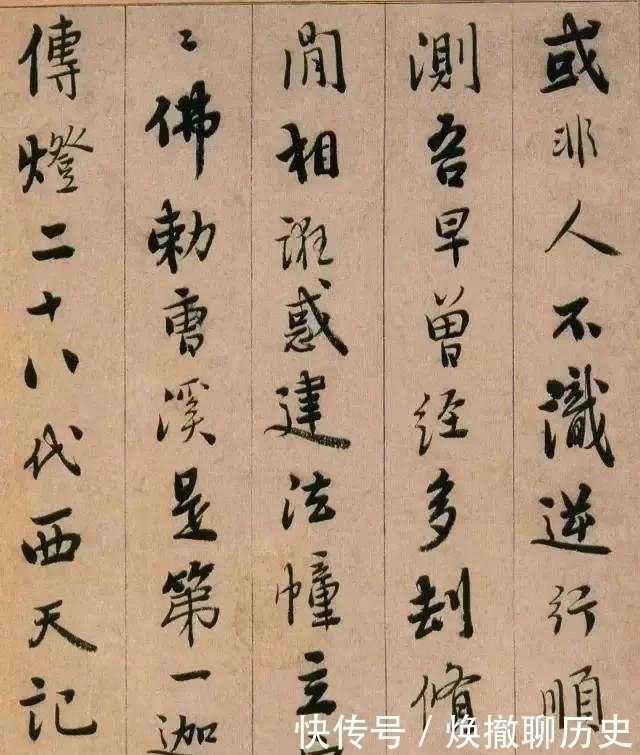 或非人不識逆行順
測吾早曾經多刧脩
閒相誑惑建法幢立
〻佛勅曹溪是第一迦
傳燈二十八代西天記
快传号 / 焕撤聊历史